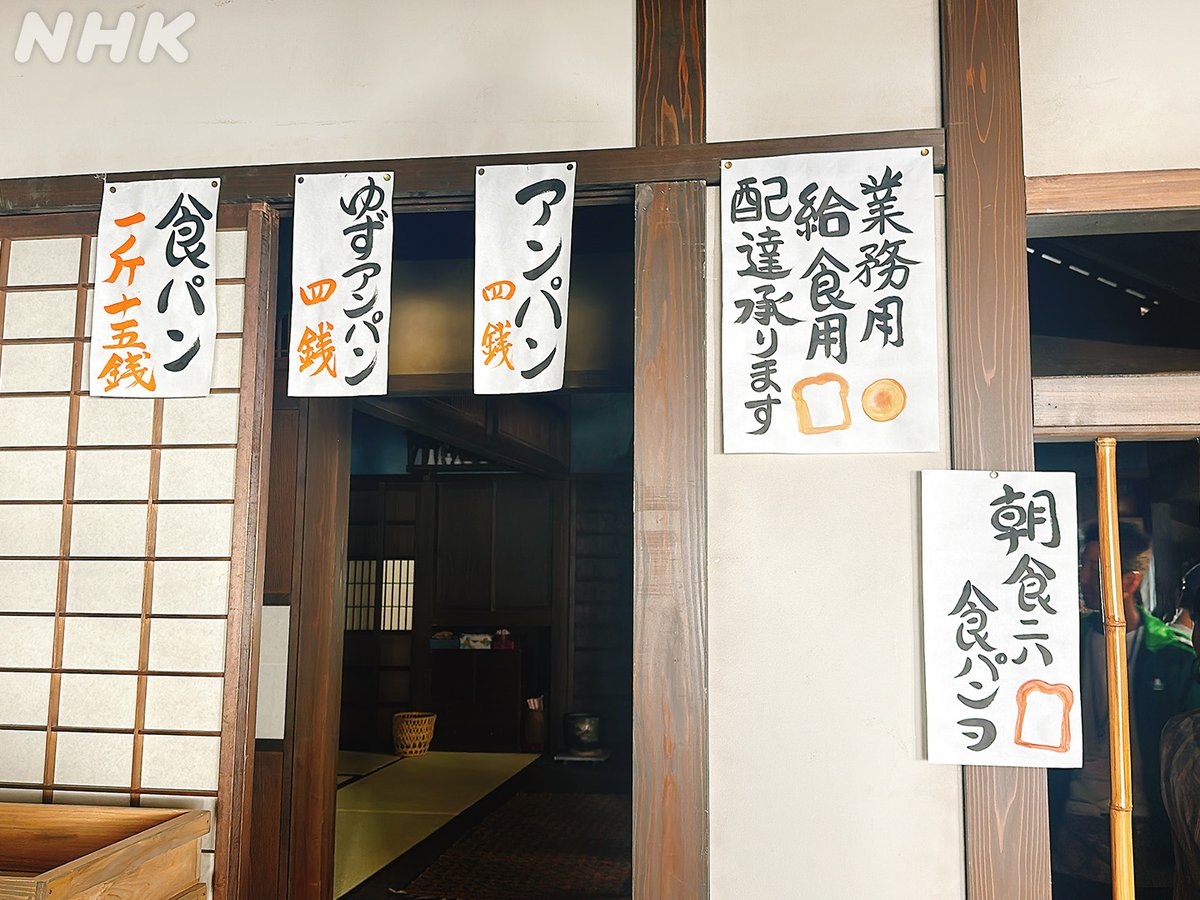 NHK
業務用
給食用
配達承ります
アンパン
四銭
ゆずアンパン
四銭
食パン
一斤十五銭
朝食ニハ
食パンヲ